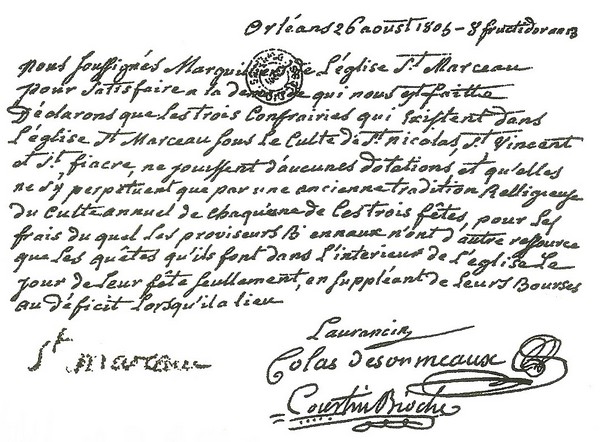 Orléans 26 aoust 1805 - 8 fructidor an 13
nous soussignés Marguil de L'église St. Marceau
pour satisfaire a la demande qui nous est faitte
Déclarons que les trois Confrairies qui Existent dans
L'église St Marceau sous le Culte de St. nicolas, St. Vincent
et St. fiacre, ne jouissent d'aucunes dotations et qu'elles
ne s'y perpétuent que par une ancienne tradition Relligieuse
du Culte annuel de chaqu'une de ces trois fêtes, pour les
frais du quel les proviseurs Biennaux n'ont d'autre ressource
que les quêtes qu'ils font dans l'interieur de L'église Le
jour de Leur fête seullement, en suppléant de Leurs Bourses
au déficit lorsqu'il a lieu
Laurancin
St. marceau
Colas Desormeaux
Courtin Bioche